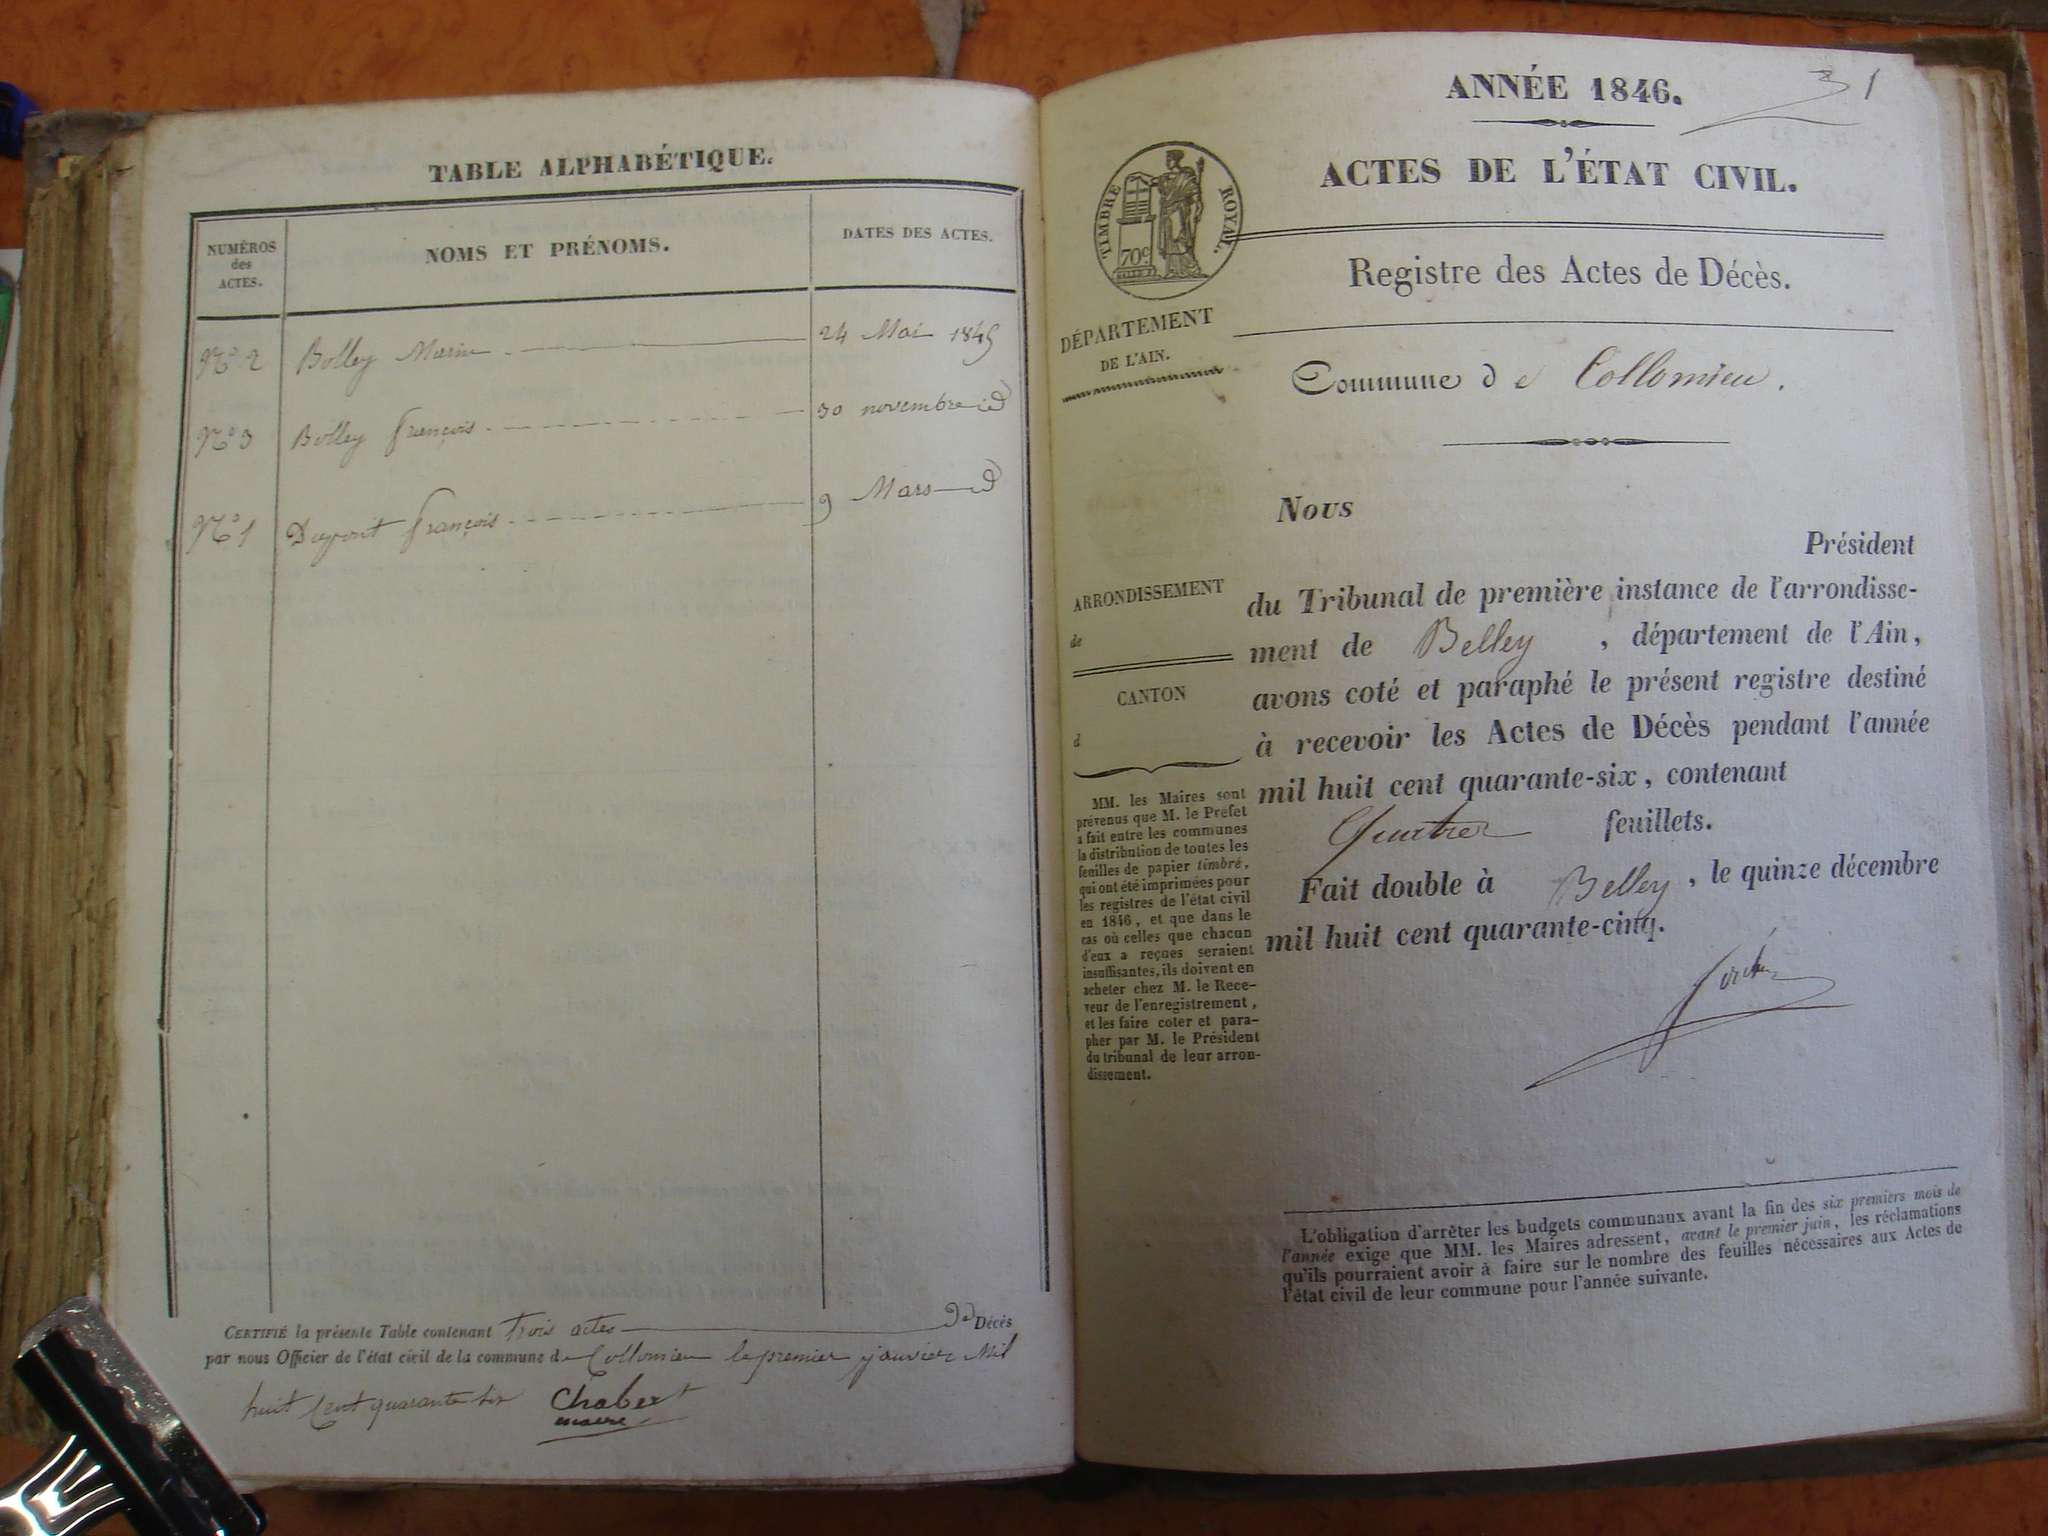 TABLE ALPHABÉTIQUE.
NUMÉROS des ACTES.
NOMS ET PRÉNOMS.
DATES DES ACTES.
No 2 Bolley Marie 24 Mai 1845
No 3 Bolley françois 30 novembre id
No 1 Dupont françois 9 Mars id
CERTIFIÉ la présente Table contenant trois actes de Décès
par nous Officier de l'état civil de la commune de Collomieu le premier janvier Mil
huit Cent quarante six Chabert
maire
ANNÉE 1846.
1
ACTES DE L'ÉTAT CIVIL.
TIMBRE ROYAL.
70c
Registre des Actes de Décès.
DÉPARTEMENT
DE L'AIN.
Commune de Collomieu.
Nous
Président
du Tribunal de première instance de l'arrondisse-
ment de Belley, département de l'Ain,
avons coté et paraphé le présent registre destiné
à recevoir les Actes de Décès pendant l'année
mil huit cent quarante-six, contenant
Quatre feuillets.
Fait double à Belley, le quinze décembre
mil huit cent quarante-cinq.
ARRONDISSEMENT
de
CANTON
d
MM. les Maires sont
prévenus que M. le Préfet
a fait entre les communes
la distribution de toutes les
feuilles de papier timbré,
qui ont été imprimées pour
les registres de l'état civil
en 1846, et que dans le
cas où celles que chacun
d'eux a reçues seraient
insuffisantes, ils doivent en
acheter chez M. le Rece-
veur de l'enregistrement,
et les faire coter et para-
pher par M. le Président
du tribunal de leur arron-
dissement.
L'obligation d'arrêter les budgets communaux avant la fin des six premiers mois de
l'année exige que MM. les Maires adressent, avant le premier juin, les réclamations
qu'ils pourraient avoir à faire sur le nombre des feuilles nécessaires aux Actes de
l'état civil de leur commune pour l'année suivante.